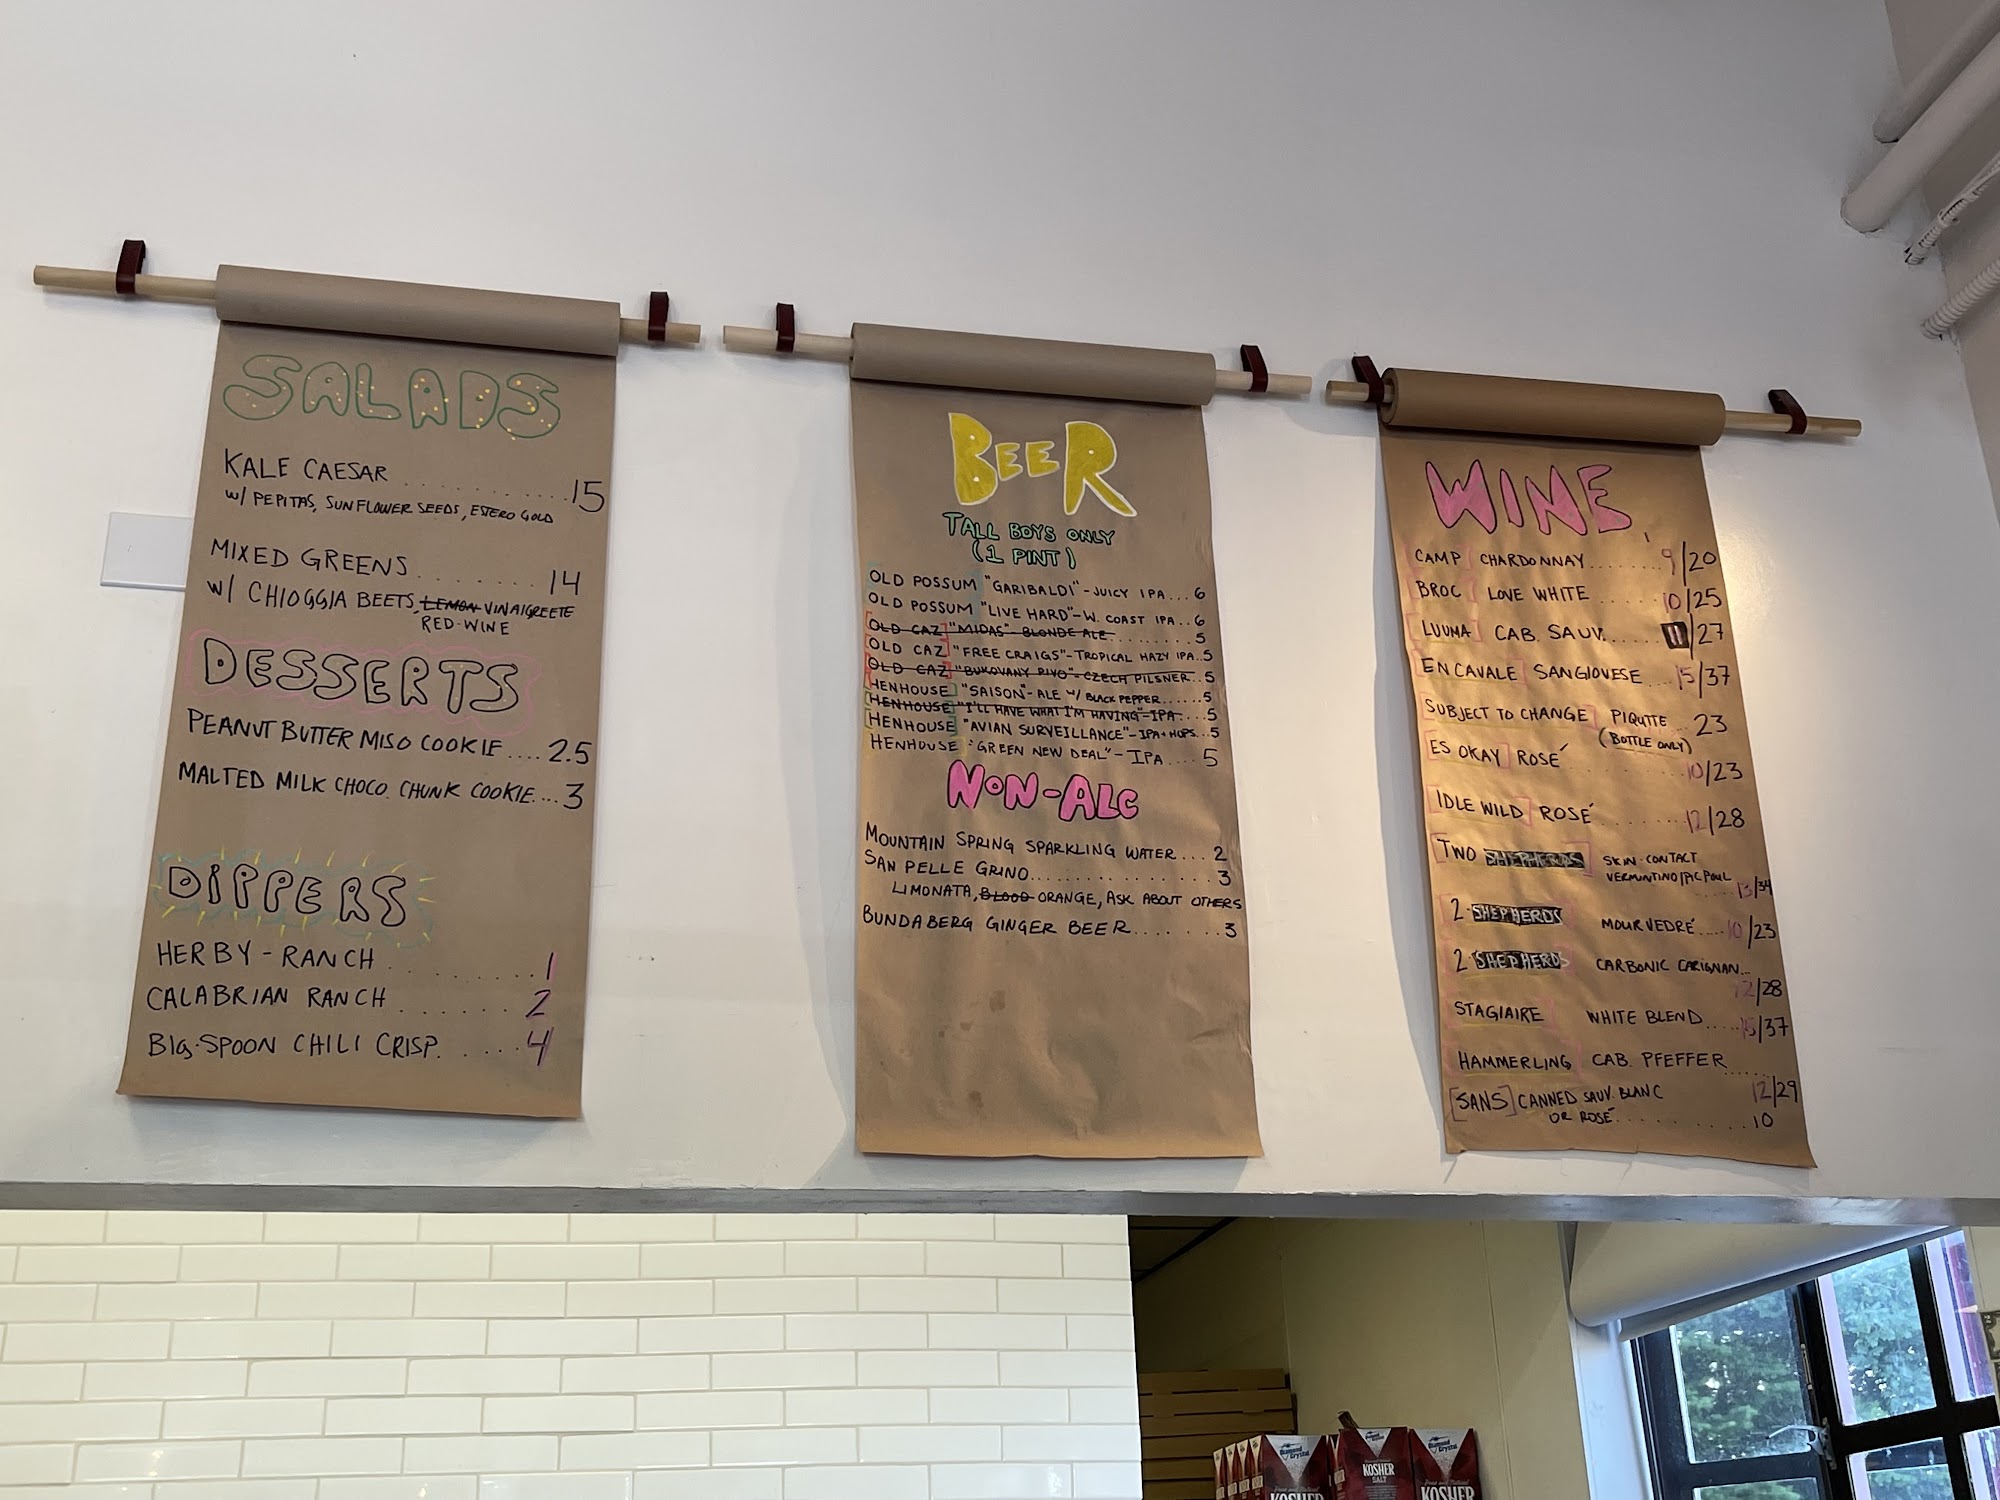 SALADS
KALE CAESAR ............ 15
W/ PEPITAS, SUNFLOWER SEEDS, ESTERO GOLD
MIXED GREENS ........ 14
W/ CHIOGGIA BEETS, LEMON VINAIGREETE
RED-WINE
DESSERTS
PEANUT BUTTER MISO COOKIE .... 2.5
MALTED MILK CHOCO. CHUNK COOKIE.... 3
DIPPERS
HERBY-RANCH ............ 1
CALABRIAN RANCH ........ 2
BIG-SPOON CHILI CRISP. ...... 4
BEER
TALL BOYS ONLY
(1 PINT)
OLD POSSUM "GARIBALDI"-JUICY IPA... 6
OLD POSSUM "LIVE HARD"-W. COAST IPA.. 6
OLD CAZ "MIDAS"-BLONDE ALE .......... 5
OLD CAZ "FREE CRAIGS"-TROPICAL HAZY IPA..5
OLD CAZ "BUKOVANY PIVO"-CZECH PILSNER.. 5
HENHOUSE "SAISON"-ALE W/ BLACK PEPPER...... 5
HENHOUSE "I'LL HAVE WHAT I'M HAVING"-IPA.... 5
HENHOUSE "AVIAN SURVEILLANCE"-IPA+HOPS...5
HENHOUSE "GREEN NEW DEAL"-IPA .... 5
NON-ALC
MOUNTAIN SPRING SPARKLING WATER... 2
SAN PELLE GRINO................ 3
LIMONATA, BLOOD ORANGE, ASK ABOUT OTHERS
BUNDABERG GINGER BEER........ 3
WINE
[CAMP] CHARDONNAY........ 9/20
[BROC] LOVE WHITE ...... 10/25
[LUUMA] CAB. SAUV....... 11/27
[EN CAVALE] SANGIOVESE... 15/37
[SUBJECT TO CHANGE] PIQUTTE ... 23
(BOTTLE ONLY)
[ES OKAY] ROSÉ
10/23
[IDLE WILD] ROSÉ ........... 12/28
[TWO SHEPHERDS] SKIN-CONTACT
VERMINTINO/PIC POUL
..... 13/34
[2-SHEPHERDS] MOURVEDRÉ.... 10/23
[2-SHEPHERDS] CARBONIC CARIGNAN...
12/28
[STAGIAIRE] WHITE BLEND.... 15/37
[HAMMERLING] CAB. PFEFFER......
12/29
[SANS] CANNED SAUV. BLANC
OR ROSÉ............. 10
Diamond Crystal
KOSHER
Diamond Crystal
KOSHER
SALT
Diamond Crystal
KOSHER